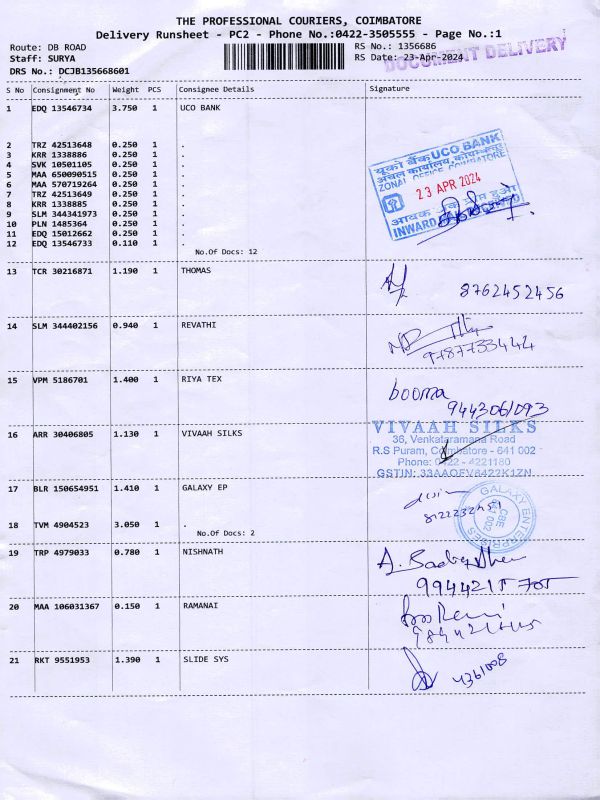 THE PROFESSIONAL COURIERS, COIMBATORE
Delivery Runsheet - PC2 - Phone No.:0422-3505555 - Page No.:1
Route: DB ROAD
RS No.: 1356686
Staff: SURYA
RS Date: 23-Apr-2024
DOCUMENT DELIVERY
DRS No.: DCJB135668601
S No Consignment No Weight PCS Consignee Details Signature
1 EDQ 13546734 3.750 1 UCO BANK
2 TRZ 42513648 0.250 1 .
3 KRR 1338886 0.250 1 .
4 SVK 10501105 0.250 1 .
5 MAA 650090515 0.250 1 .
6 MAA 570719264 0.250 1 .
7 TRZ 42513649 0.250 1 .
8 KRR 1338885 0.250 1 .
9 SLM 344341973 0.250 1 .
10 PLN 1485364 0.250 1 .
11 EDQ 15012662 0.250 1 .
12 EDQ 13546733 0.110 1 .
No.Of Docs: 12
यूको बैंक UCO BANK
अंचल कार्यालय, कोयम्बत्तूर
ZONAL OFFICE, COIMBATORE
23 APR 2024
INWARD
13 TCR 30216871 1.190 1 THOMAS
8762452456
14 SLM 344402156 0.940 1 REVATHI
9787733444
15 VPM 5186701 1.400 1 RIYA TEX
booma
9443061093
16 ARR 30406805 1.130 1 VIVAAH SILKS
VIVAAH SILKS
36, Venkataramana Road
R.S Puram, Coimbatore - 641 002
Phone: 0422 - 4221180
17 BLR 150654951 1.410 1 GALAXY EP
GALAXY ENTERPRISES
CBE
641 002
18 TVM 4904523 3.050 1 .
No.Of Docs: 2
19 TRP 4979033 0.780 1 NISHNATH
20 MAA 106031367 0.150 1 RAMANAI
21 RKT 9551953 1.390 1 SLIDE SYS
4361008